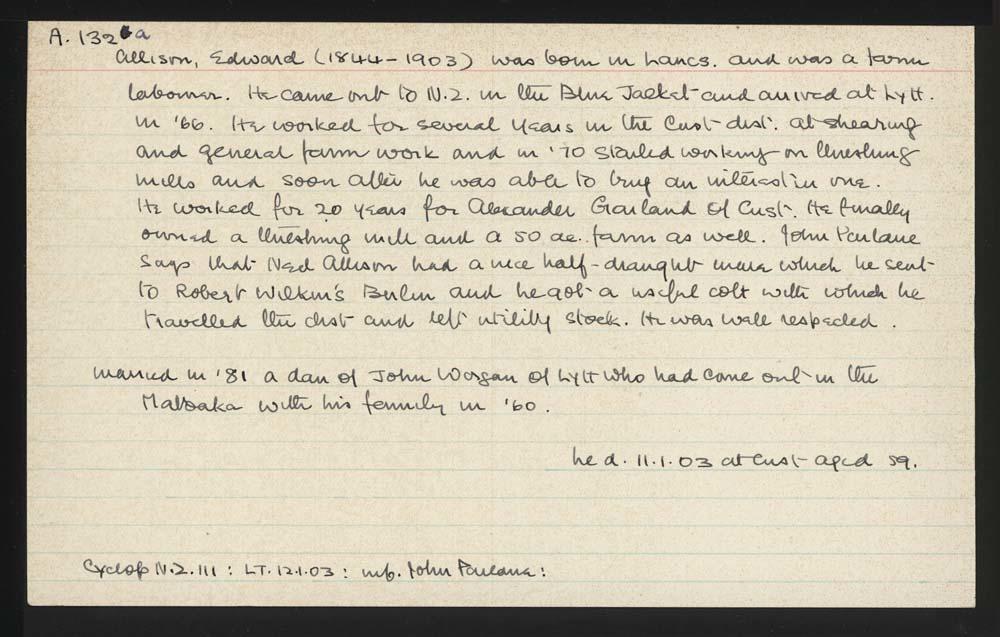 A. 132a
Allison, Edward (1844-1903) was born in Lancs. and was a farm
labourer. He came out to N.Z. in the Blue Jacket and arrived at Lytt.
in '66. He worked for several years in the Cust dist. at shearing
and general farm work and in '70 started working on threshing
mills and soon after he was able to buy an interest in one.
He worked for 20 years for Alexander Garland of Cust. He finally
owned a threshing mill and a 50 ac. farm as well. John
says that Ned Allison had a nice half-draught mare which he sent
to Robert Wilkin's Berlin and he got a useful colt with which he
travelled the dist and left utility stock. He was well respected.
Married in '81 a dau of John Worgan of Lytt who had come out in the
Matoaka with his family in '60.
he d. 11.1.03 at Cust aged 59.
Cyclop N.Z. 111 : LT. 12.1.03 : inf. John :